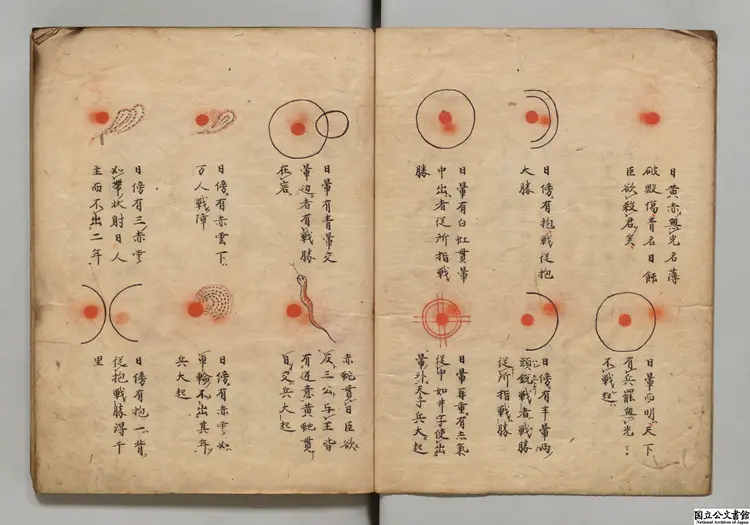 日黄赤無光名薄
破毀傷者名日蝕
臣欲殺君矣
日傍有抱戦従抱
大勝
日暈有白虹貫暈
中出者従所指戦
勝
日暈而明天下
有兵罷無光
不戦起
日傍有半暈両
頭鋭戦者戦勝
従所指戦勝
日暈再重有赤気
従中如井字使出
暈外天子兵大起
日暈有青暈交
暈辺者有戦勝
在客
日傍有赤雲下
万人戦障
日傍有三赤雲
如帯状射日人
主而不出二年
赤蛇貫日臣欲
反三公与王皆
有逆意黄蛇貫
日交兵大起
日傍有赤雲如
車輪不出其年
兵大起
日傍有抱一背
従抱戦勝得千
里
国立公文書館
National Archives of Japan